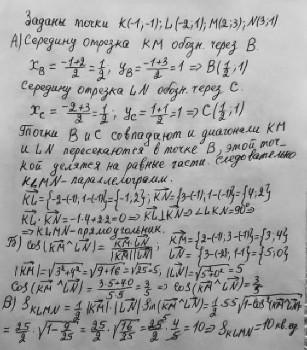 Заданы точки K(-1;-1); L(-2;1); M(2;3); N(3;1)
А) Середину отрезка KM обозн. через B.
x_B = (-1+2)/2 = 1/2; y_B = (-1+3)/2 = 1 ⇒ B(1/2; 1)
Середину отрезка LN обозн. через C.
x_C = (-2+3)/2 = 1/2; y_C = (1+1)/2 = 1 ⇒ C(1/2; 1)
Точки B и C совпадают и диагонали KM
и LN пересекаются в точке B, этой точ-
кой делятся на равные части. Следовательно
KLMN - параллелограмм.
KL = {-2-(-1), 1-(-1)} = {-1; 2}; KN = {3-(-1), 1-(-1)} = {4; 2}
KL · KN = -1·4+2·2 = 0 ⇒ KL ⊥ KN ⇒ ∠LKN = 90° ⇒
⇒ KLMN - прямоугольник.
Б) cos(KM ^ LN) = KM · LN / |KM| |LN|; KM = {2-(-1), 3-(-1)} = {3; 4}
LN = {3-(-2), 1-1} = {5; 0}
|KM| = √3²+4² = √9+16 = √25 = 5; |LN| = √5²+0² = 5
cos(KM ^ LN) = 3·5+4·0 / 5·5 = 3/5 ⇒ cos(KM ^ LN) = 3/5
В) S_KLMN = 1/2 |KM| · |LN| sin(KM ^ LN) = 1/2 · 5·5 √1-cos²(KM ^ LN) =
= 25/2 · √1-9/25 = 25/2 · √16/25 = 25/2 · 4/5 = 10 ⇒ S_KLMN = 10 кв.ед.